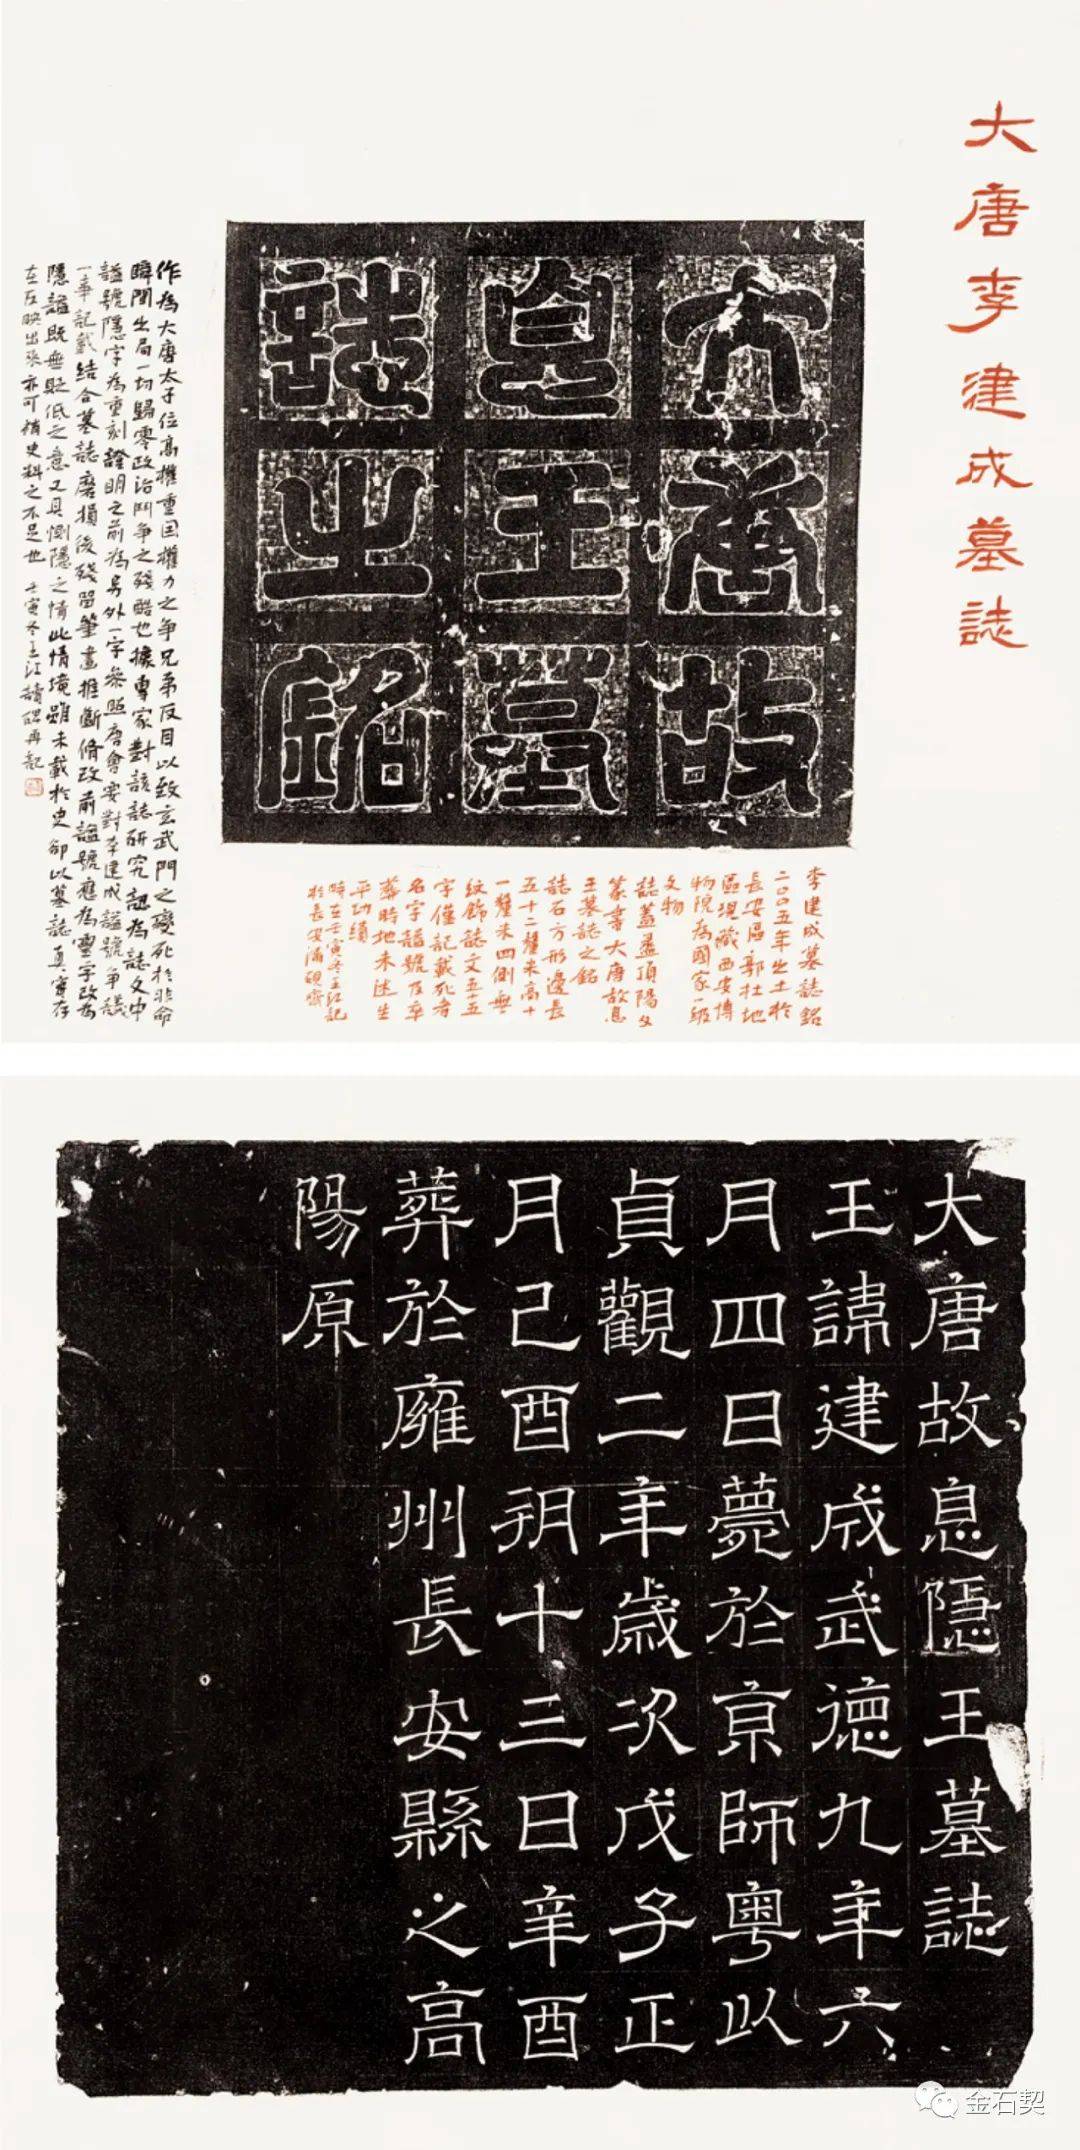 大唐李建成墓誌
大唐故
息王墓
誌之銘
李建成墓誌銘
二〇〇五年出土於
長安區郭杜地
區現藏西安博
物院為國家一級
文物
誌蓋盝頂陽文
篆書大唐故息
王墓誌之銘
誌石方形邊長
五十二釐米高十
一釐米四側無
紋飾誌文五十五
字僅記載死者
名字謚號及卒
葬時地未述生
平功績
時在壬寅冬王江記
於長安滿硯齋
作為大唐太子位高權重因權力之爭兄弟反目以致玄武門之變死於非命
瞬間出局一切歸零政治鬥爭之殘酷也據專家對該誌研究認為誌文中
謚號隱字為重刻證明之前為另外一字參照唐會要對李建成謚號爭議
一事記載結合墓誌磨損後殘留筆畫推斷修改前謚號應為靈字改為
隱謚既無貶低之意又具惻隱之情此情境雖未載於史卻以墓誌真實存
在反映出來亦可補史料之不足也 壬寅冬王江讀碑再記
大唐故息隱王墓誌
王諱建成武德九年六
月四日薨於京師粵以
貞觀二年歲次戊子正
月己酉朔十三日辛酉
葬於雍州長安縣之高
陽原
金石契